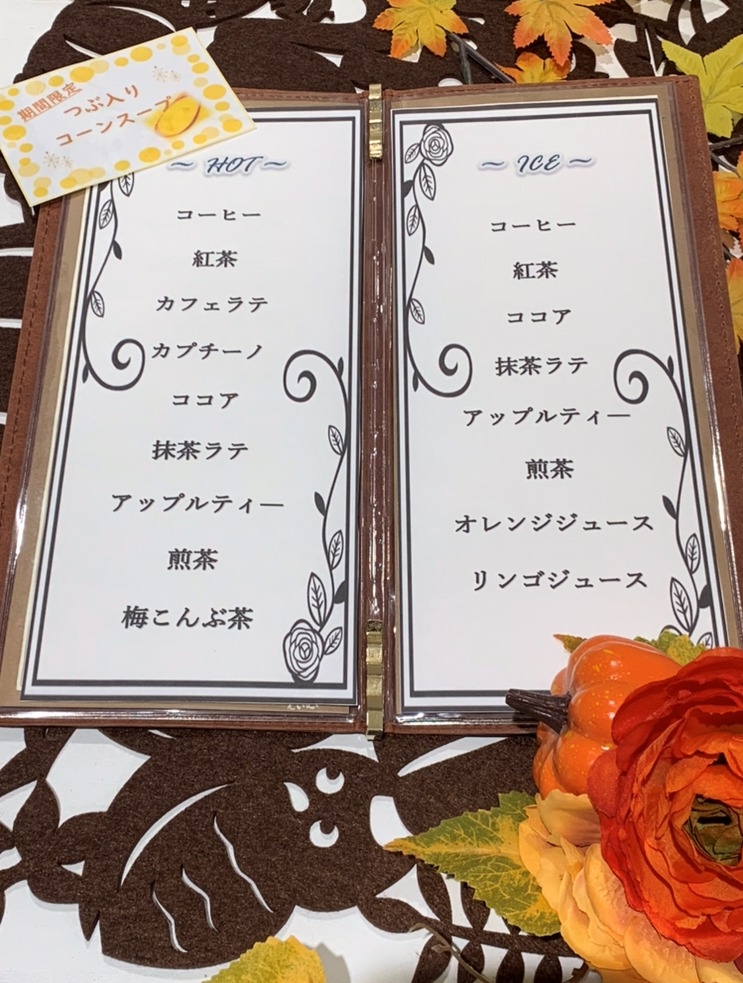 期間限定
つぶ入り
コーンスープ
～ HOT ～
コーヒー
紅茶
カフェラテ
カプチーノ
ココア
抹茶ラテ
アップルティー
煎茶
梅こんぶ茶
～ ICE ～
コーヒー
紅茶
ココア
抹茶ラテ
アップルティー
煎茶
オレンジジュース
リンゴジュース